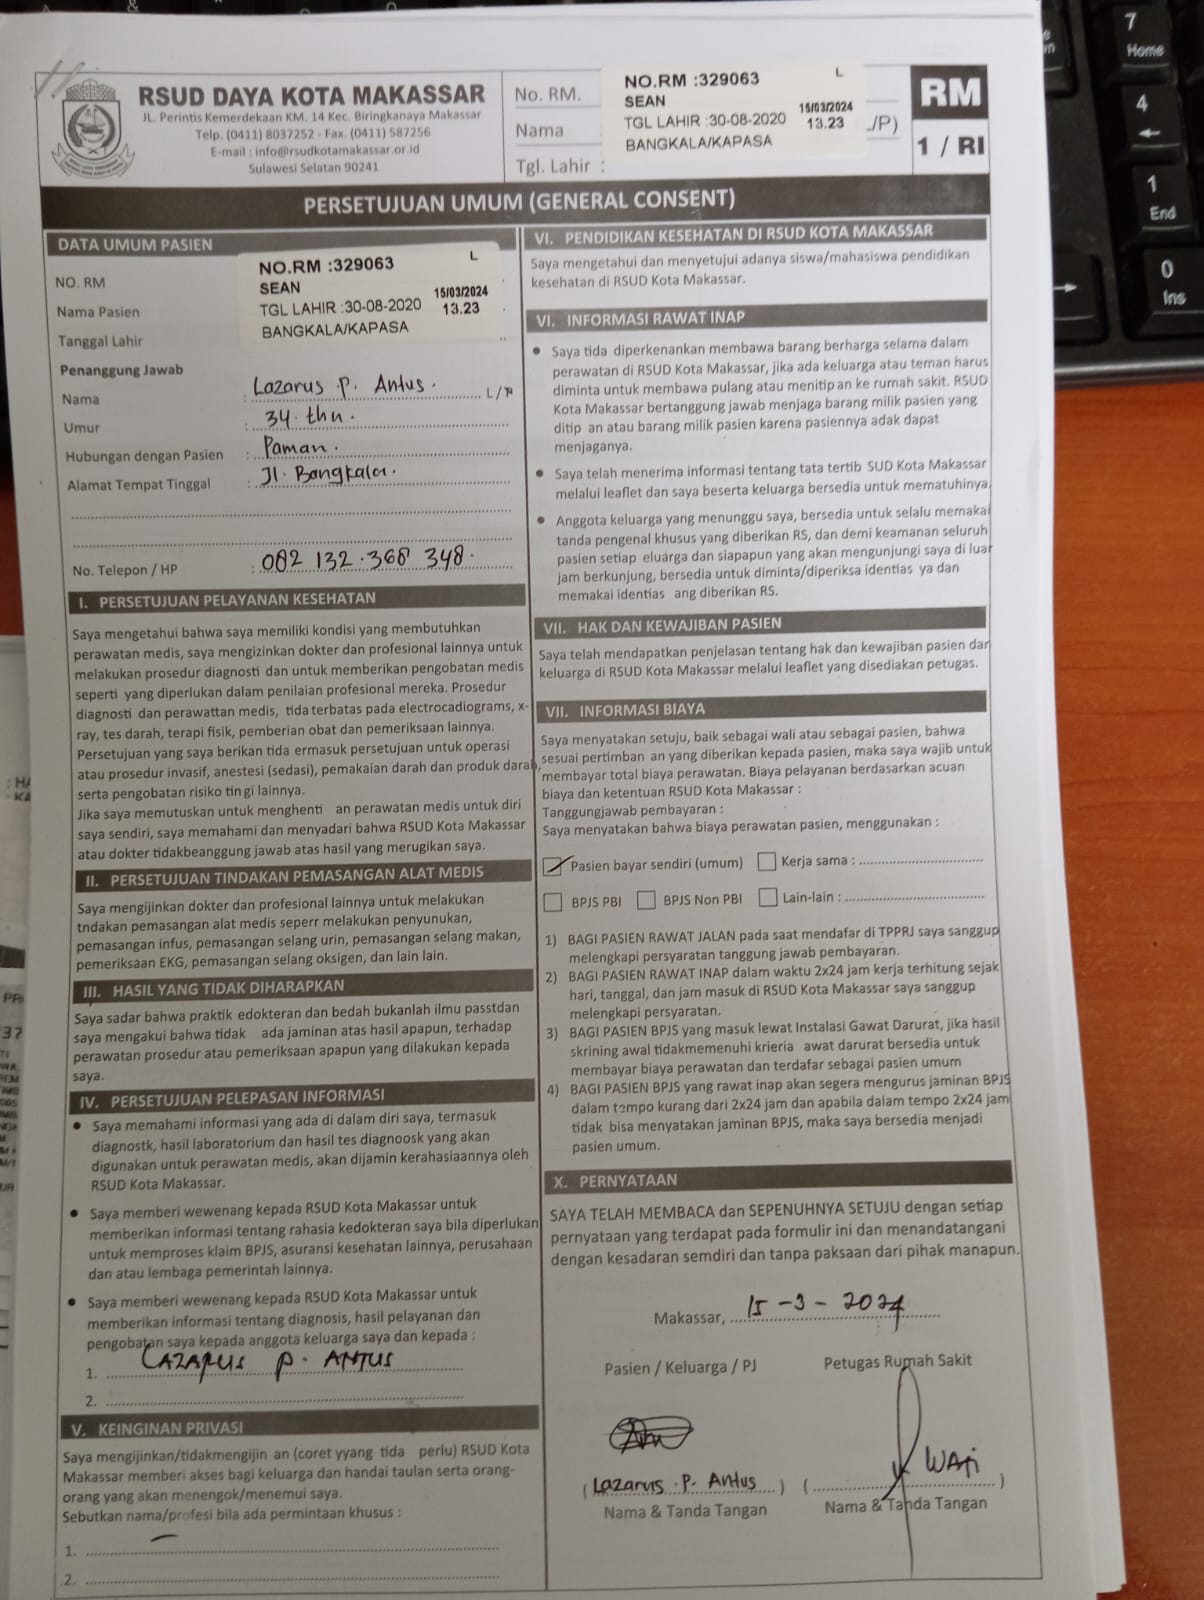 RSUD DAYA KOTA MAKASSAR
JL. Perintis Kemerdekaan KM. 14 Kec. Biringkanaya Makassar
Telp. (0411) 8037252 - Fax. (0411) 587256
E-mail : info@rsudkotamakassar.or.id
Sulawesi Selatan 90241
No. RM.
Nama
Tgl. Lahir :
NO.RM :329063 L
SEAN 15/03/2024
TGL LAHIR :30-08-2020 13.23
BANGKALA/KAPASA
/P)
RM
1 / RI
PERSETUJUAN UMUM (GENERAL CONSENT)
DATA UMUM PASIEN
NO. RM
Nama Pasien
Tanggal Lahir
NO.RM :329063 L
SEAN 15/03/2024
TGL LAHIR :30-08-2020 13.23
BANGKALA/KAPASA
Penanggung Jawab
Nama : Lazarus . P. Antus . L/P
Umur : 34. thn .
Hubungan dengan Pasien : Paman .
Alamat Tempat Tinggal : Jl. Bangkala .
No. Telepon / HP : 082 132 . 368 348 .
I. PERSETUJUAN PELAYANAN KESEHATAN
Saya mengetahui bahwa saya memiliki kondisi yang membutuhkan
perawatan medis, saya mengizinkan dokter dan profesional lainnya untuk
melakukan prosedur diagnosti dan untuk memberikan pengobatan medis
seperti yang diperlukan dalam penilaian profesional mereka. Prosedur
diagnosti dan perawattan medis, tida terbatas pada electrocadiograms, x-
ray, tes darah, terapi fisik, pemberian obat dan pemeriksaan lainnya.
Persetujuan yang saya berikan tida ermasuk persetujuan untuk operasi
atau prosedur invasif, anestesi (sedasi), pemakaian darah dan produk darah,
serta pengobatan risiko tin gi lainnya.
Jika saya memutuskan untuk menghenti an perawatan medis untuk diri
saya sendiri, saya memahami dan menyadari bahwa RSUD Kota Makassar
atau dokter tidakbeanggung jawab atas hasil yang merugikan saya.
II. PERSETUJUAN TINDAKAN PEMASANGAN ALAT MEDIS
Saya mengijinkan dokter dan profesional lainnya untuk melakukan
tndakan pemasangan alat medis seperr melakukan penyunukan,
pemasangan infus, pemasangan selang urin, pemasangan selang makan,
pemeriksaan EKG, pemasangan selang oksigen, dan lain lain.
III. HASIL YANG TIDAK DIHARAPKAN
Saya sadar bahwa praktik edokteran dan bedah bukanlah ilmu passtdan
saya mengakui bahwa tidak ada jaminan atas hasil apapun, terhadap
perawatan prosedur atau pemeriksaan apapun yang dilakukan kepada
saya.
IV. PERSETUJUAN PELEPASAN INFORMASI
● Saya memahami informasi yang ada di dalam diri saya, termasuk
diagnostk, hasil laboratorium dan hasil tes diagnoosk yang akan
digunakan untuk perawatan medis, akan dijamin kerahasiaannya oleh
RSUD Kota Makassar.
● Saya memberi wewenang kepada RSUD Kota Makassar untuk
memberikan informasi tentang rahasia kedokteran saya bila diperlukan
untuk memproses klaim BPJS, asuransi kesehatan lainnya, perusahaan
dan atau lembaga pemerintah lainnya.
● Saya memberi wewenang kepada RSUD Kota Makassar untuk
memberikan informasi tentang diagnosis, hasil pelayanan dan
pengobatan saya kepada anggota keluarga saya dan kepada :
1. LAZARUS P. ANTUS
2.
V. KEINGINAN PRIVASI
Saya mengijinkan/tidakmengijin an (coret yyang tida perlu) RSUD Kota
Makassar memberi akses bagi keluarga dan handai taulan serta orang-
orang yang akan menengok/menemui saya.
Sebutkan nama/profesi bila ada permintaan khusus :
1.
2.
VI. PENDIDIKAN KESEHATAN DI RSUD KOTA MAKASSAR
Saya mengetahui dan menyetujui adanya siswa/mahasiswa pendidikan
kesehatan di RSUD Kota Makassar.
VI. INFORMASI RAWAT INAP
● Saya tida diperkenankan membawa barang berharga selama dalam
perawatan di RSUD Kota Makassar, jika ada keluarga atau teman harus
diminta untuk membawa pulang atau menitip an ke rumah sakit. RSUD
Kota Makassar bertanggung jawab menjaga barang milik pasien yang
ditip an atau barang milik pasien karena pasiennya adak dapat
menjaganya.
● Saya telah menerima informasi tentang tata tertib SUD Kota Makassar
melalui leaflet dan saya beserta keluarga bersedia untuk mematuhinya.
● Anggota keluarga yang menunggu saya, bersedia untuk selalu memakai
tanda pengenal khusus yang diberikan RS, dan demi keamanan seluruh
pasien setiap eluarga dan siapapun yang akan mengunjungi saya di luar
jam berkunjung, bersedia untuk diminta/diperiksa identias ya dan
memakai identias ang diberikan RS.
VII. HAK DAN KEWAJIBAN PASIEN
Saya telah mendapatkan penjelasan tentang hak dan kewajiban pasien dan
keluarga di RSUD Kota Makassar melalui leaflet yang disediakan petugas.
VII. INFORMASI BIAYA
Saya menyatakan setuju, baik sebagai wali atau sebagai pasien, bahwa
sesuai pertimban an yang diberikan kepada pasien, maka saya wajib untuk
membayar total biaya perawatan. Biaya pelayanan berdasarkan acuan
biaya dan ketentuan RSUD Kota Makassar :
Tanggungjawab pembayaran :
Saya menyatakan bahwa biaya perawatan pasien, menggunakan :
Pasien bayar sendiri (umum) Kerja sama :
BPJS PBI BPJS Non PBI Lain-lain :
1) BAGI PASIEN RAWAT JALAN pada saat mendafar di TPPRJ saya sanggup
melengkapi persyaratan tanggung jawab pembayaran.
2) BAGI PASIEN RAWAT INAP dalam waktu 2x24 jam kerja terhitung sejak
hari, tanggal, dan jam masuk di RSUD Kota Makassar saya sanggup
melengkapi persyaratan.
3) BAGI PASIEN BPJS yang masuk lewat Instalasi Gawat Darurat, jika hasil
skrining awal tidakmemenuhi krieria awat darurat bersedia untuk
membayar biaya perawatan dan terdafar sebagai pasien umum
4) BAGI PASIEN BPJS yang rawat inap akan segera mengurus jaminan BPJS
dalam tempo kurang dari 2x24 jam dan apabila dalam tempo 2x24 jam
tidak bisa menyatakan jaminan BPJS, maka saya bersedia menjadi
pasien umum.
X. PERNYATAAN
SAYA TELAH MEMBACA dan SEPENUHNYA SETUJU dengan setiap
pernyataan yang terdapat pada formulir ini dan menandatangani
dengan kesadaran semdiri dan tanpa paksaan dari pihak manapun.
Makassar, 15 - 3 - 2024
Pasien / Keluarga / PJ Petugas Rumah Sakit
( Lazarus . P. Antus ) ( WATI )
Nama & Tanda Tangan Nama & Tanda Tangan
7
Home
4
1
End
0
Ins